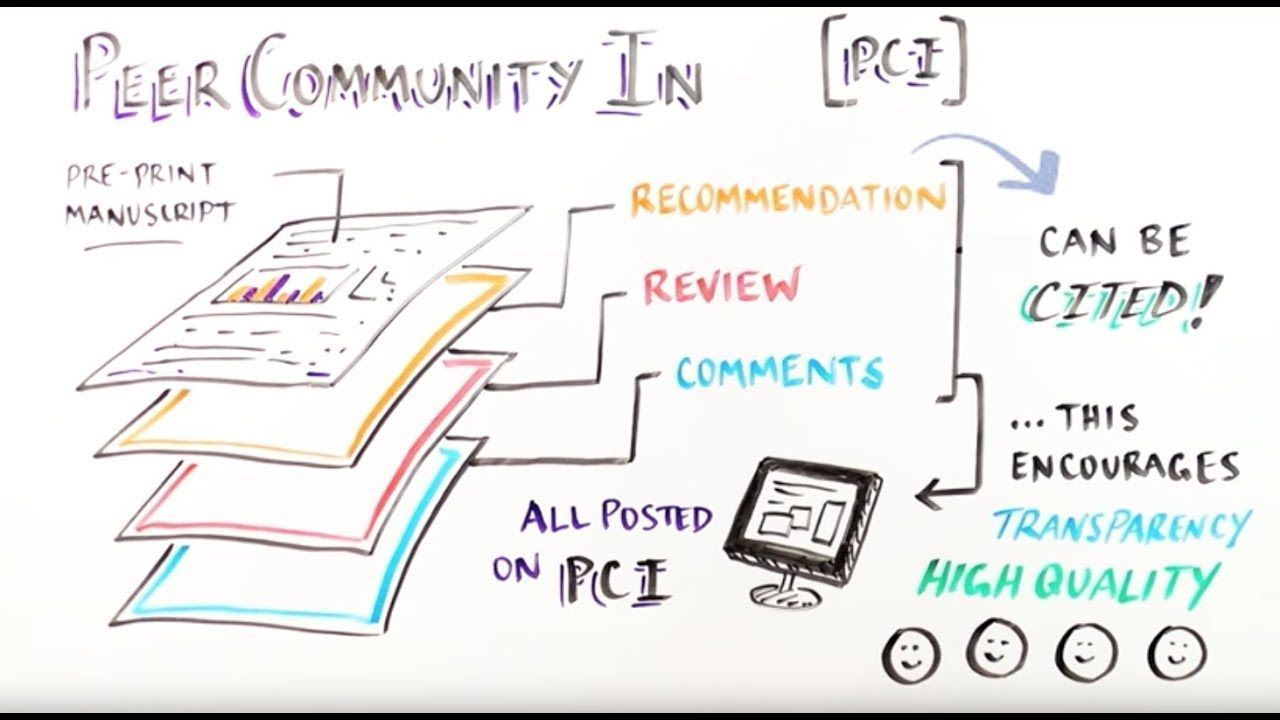 PEER COMMUNITY IN [PCI]
PRE-PRINT
MANUSCRIPT
RECOMMENDATION
REVIEW
COMMENTS
CAN BE
CITED!
...THIS
ENCOURAGES
TRANSPARENCY
HIGH QUALITY
ALL POSTED
ON PCI